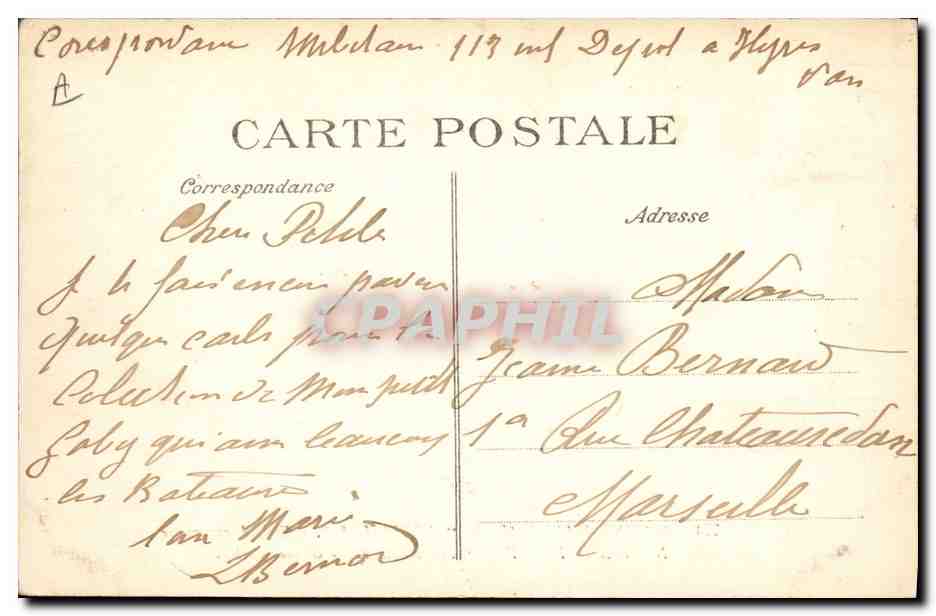 Corespondance Militaire 113 inf Depot a Hyeres
Var
A
CARTE POSTALE
Correspondance
Adresse
Cher Bebele
Je te fais encor
quelque carte pour ta
Colection de Mon petit
Gaby qui aim beaucoup
les Bateaux
ton Mari
LBernard
Madame
Jeanne Bernard
1a Rue Chateauredon
Marseille
CPAPHIL